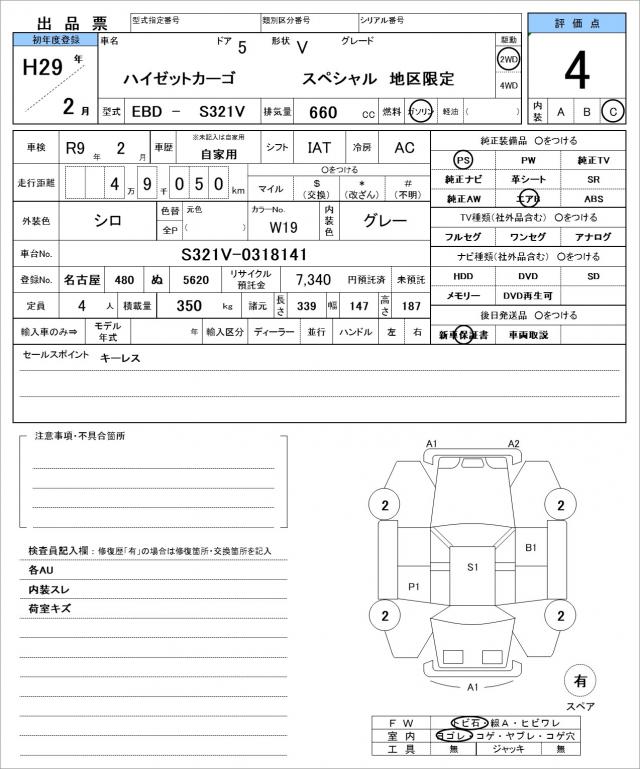 出品票 型式指定番号 類別区分番号 シリアル番号 評価点
初年度登録 車名 ドア 5 形状 V グレード 駆動
H29 年 ハイゼットカーゴ スペシャル 地区限定 2WD 4
4WD
2 月 型式 EBD - S321V 排気量 660 cc 燃料 ガソリン 軽油 ( ) 内装 A B C
車検 R9 年 2 月 車歴 ※未記入は自家用 自家用 シフト IAT 冷房 AC 純正装備品 〇をつける
PS PW 純正TV
走行距離 4 万 9 千 0 5 0 km 〇をつける
マイル $ (交換) * (改ざん) # (不明) 純正ナビ 革シート SR
純正AW エアB ABS
外装色 シロ 色替 元色 カラーNo. 内装色 グレー TV種類(社外品含む) 〇をつける
全P ( ) W19 フルセグ ワンセグ アナログ
車台No. S321V-0318141 ナビ種類(社外品含む) 〇をつける
登録No. 名古屋 480 ぬ 5620 リサイクル預託金 7,340 円預託済 未預託 HDD DVD SD
定員 4 人 積載量 350 kg 諸元 長さ 339 幅 147 高さ 187 メモリー DVD再生可
後日発送品 〇をつける
輸入車のみ⇒ モデル年式 年 輸入区分 ディーラー 並行 ハンドル 左 右 新車保証書 車両取説
セールスポイント キーレス
注意事項・不具合箇所
A1 A2
2 2
検査員記入欄:修復歴「有」の場合は修復箇所・交換箇所を記入
B1
各AU
S1
内装スレ
P1
荷室キズ
2 2
A1
有
スペア
FW トビ石・線A・ヒビワレ
室内 ヨゴレ・コゲ・ヤブレ・コゲ穴
工具 無 ジャッキ 無